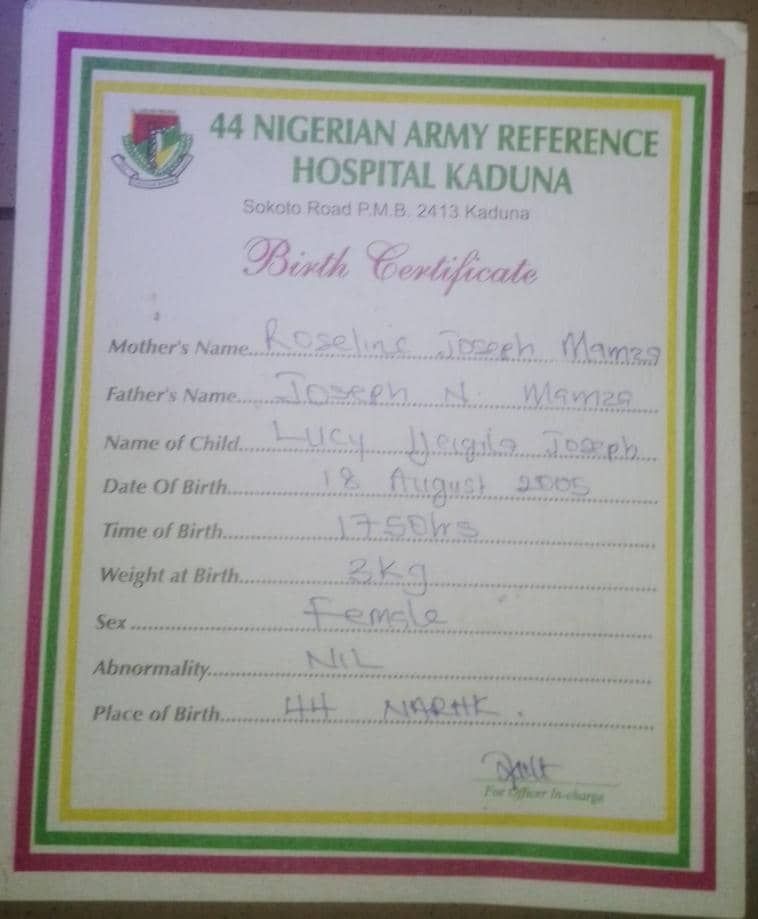 44 NIGERIAN ARMY REFERENCE
HOSPITAL KADUNA
Sokoto Road P.M.B. 2413 Kaduna
Birth Certificate
Mother's Name Roseline Joseph Mamza
Father's Name Joseph N. Mamza
Name of Child Lucy Joseph
Date Of Birth 18 August 2005
Time of Birth 1750hrs
Weight at Birth 3kg
Sex Female
Abnormality NIL
Place of Birth 44 NARHK.
For Officer In-charge